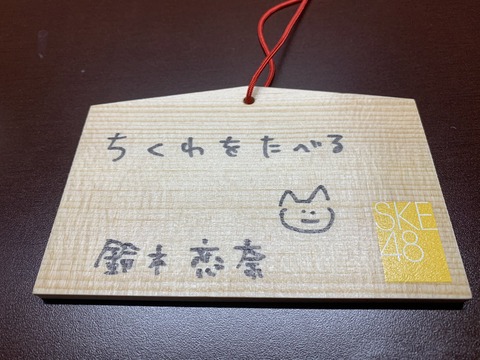 ちくわをたべる
SKE
48
鈴木恋奈